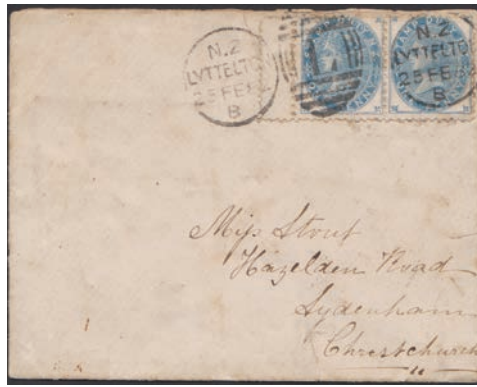 N.Z
LYTTELTO
25 FE
B
N.Z
LYTTELTO
25 FE
B
Mifs Stout
Hazelden Road
Sydenham
Christchurch